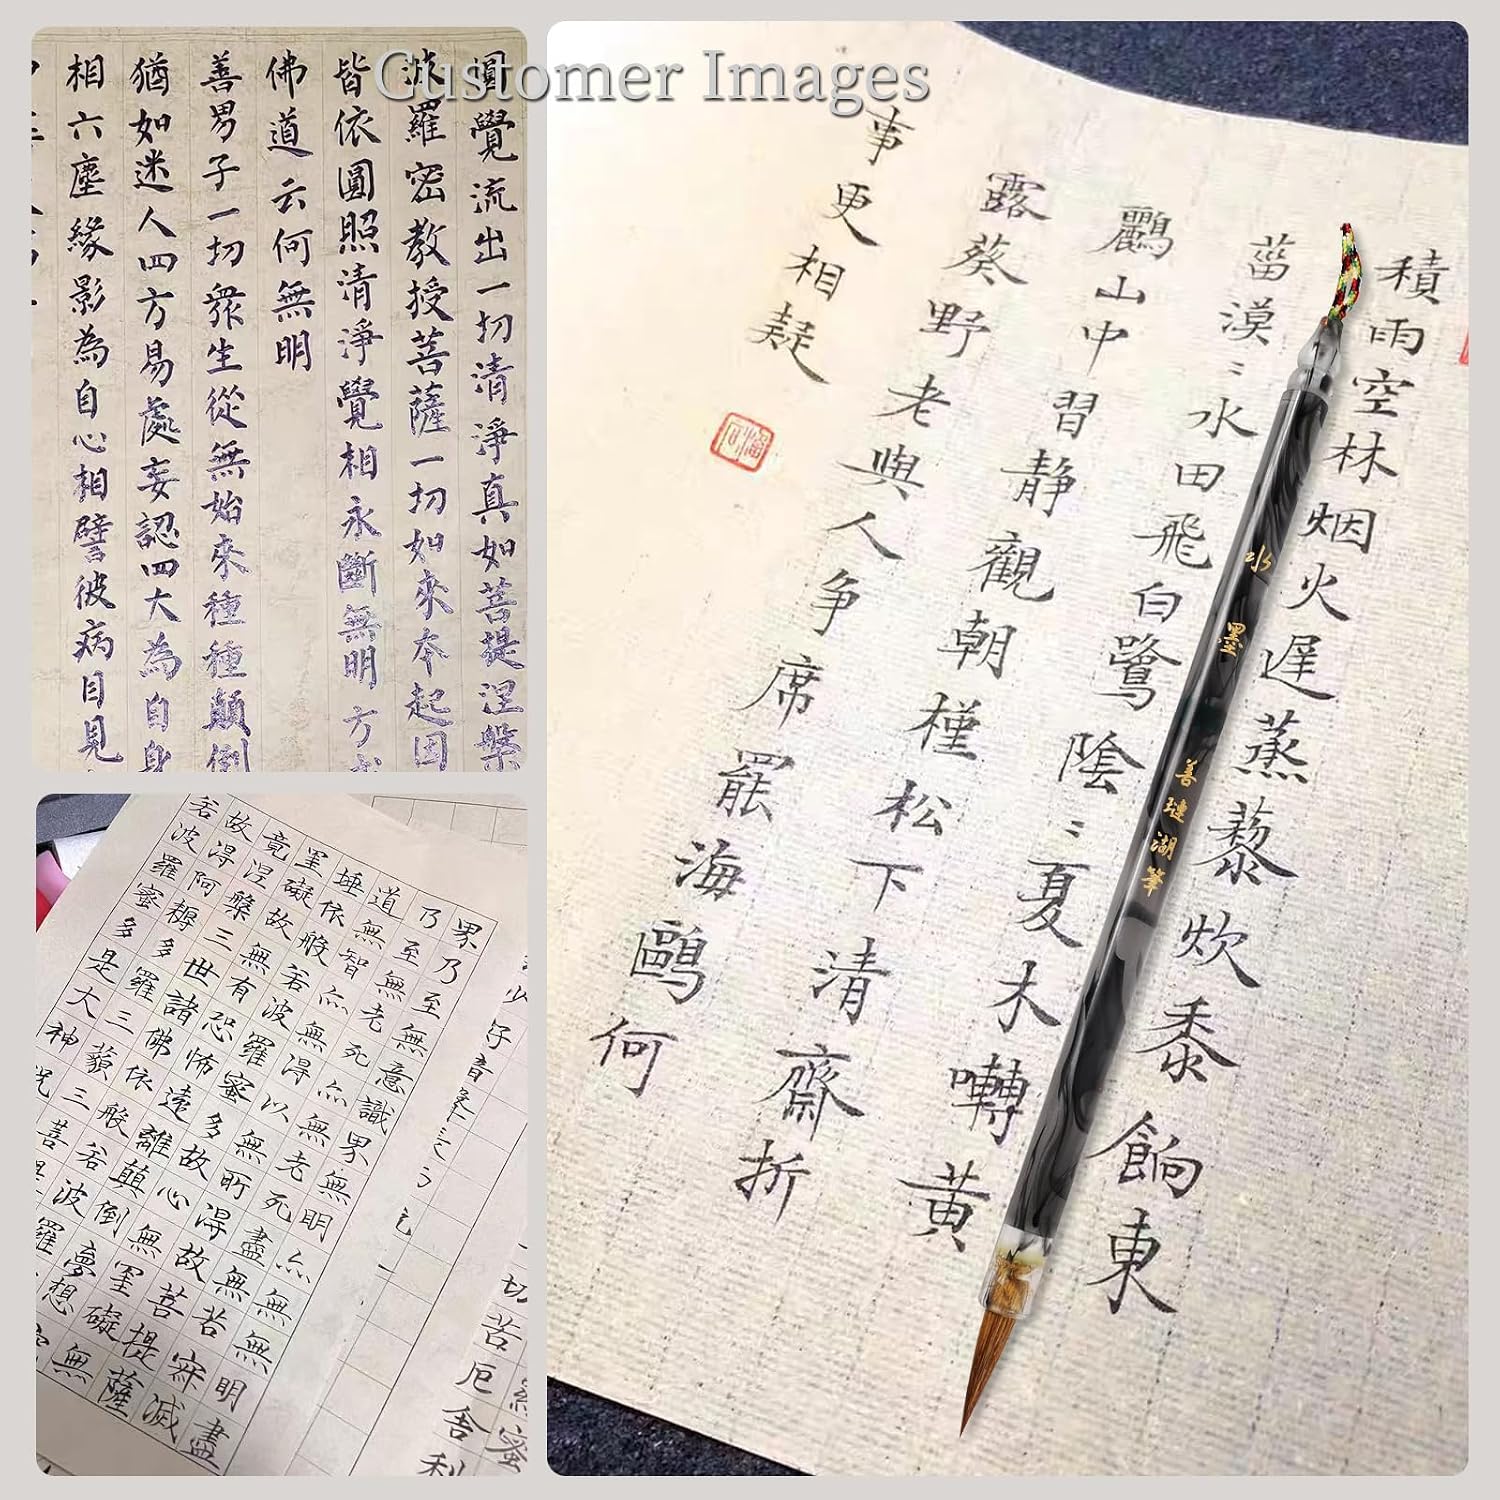 Customer Images
圓覺流出一切清淨真如菩提涅槃
波羅密教授菩薩一切如來本起因
皆依圓照清淨覺相永斷無明方
佛道云何無明
善男子一切眾生從無始來種種顛倒
猶如迷人四方易處妄認四大為自身
相六塵緣影為自心相譬彼病目見
積雨空林烟火遲蒸藜炊黍餉東
菑漠〻水田飛白鷺陰〻夏木囀黃
鸝山中習靜觀朝槿松下清齋折
露葵野老與人爭席罷海鷗何
事更相疑
水墨
善璉湖筆
界乃至無意識界無無明亦無無明盡
乃至無老死亦無老死盡無苦寂滅
道無智亦無得以無所得故菩提薩
埵依般若波羅蜜多故心無罣礙無
罣礙故無有恐怖遠離顛倒夢想
竟涅槃三世諸佛依般若波羅
故得阿耨多羅三藐三菩
若波羅蜜多是大神
一切苦厄舍利